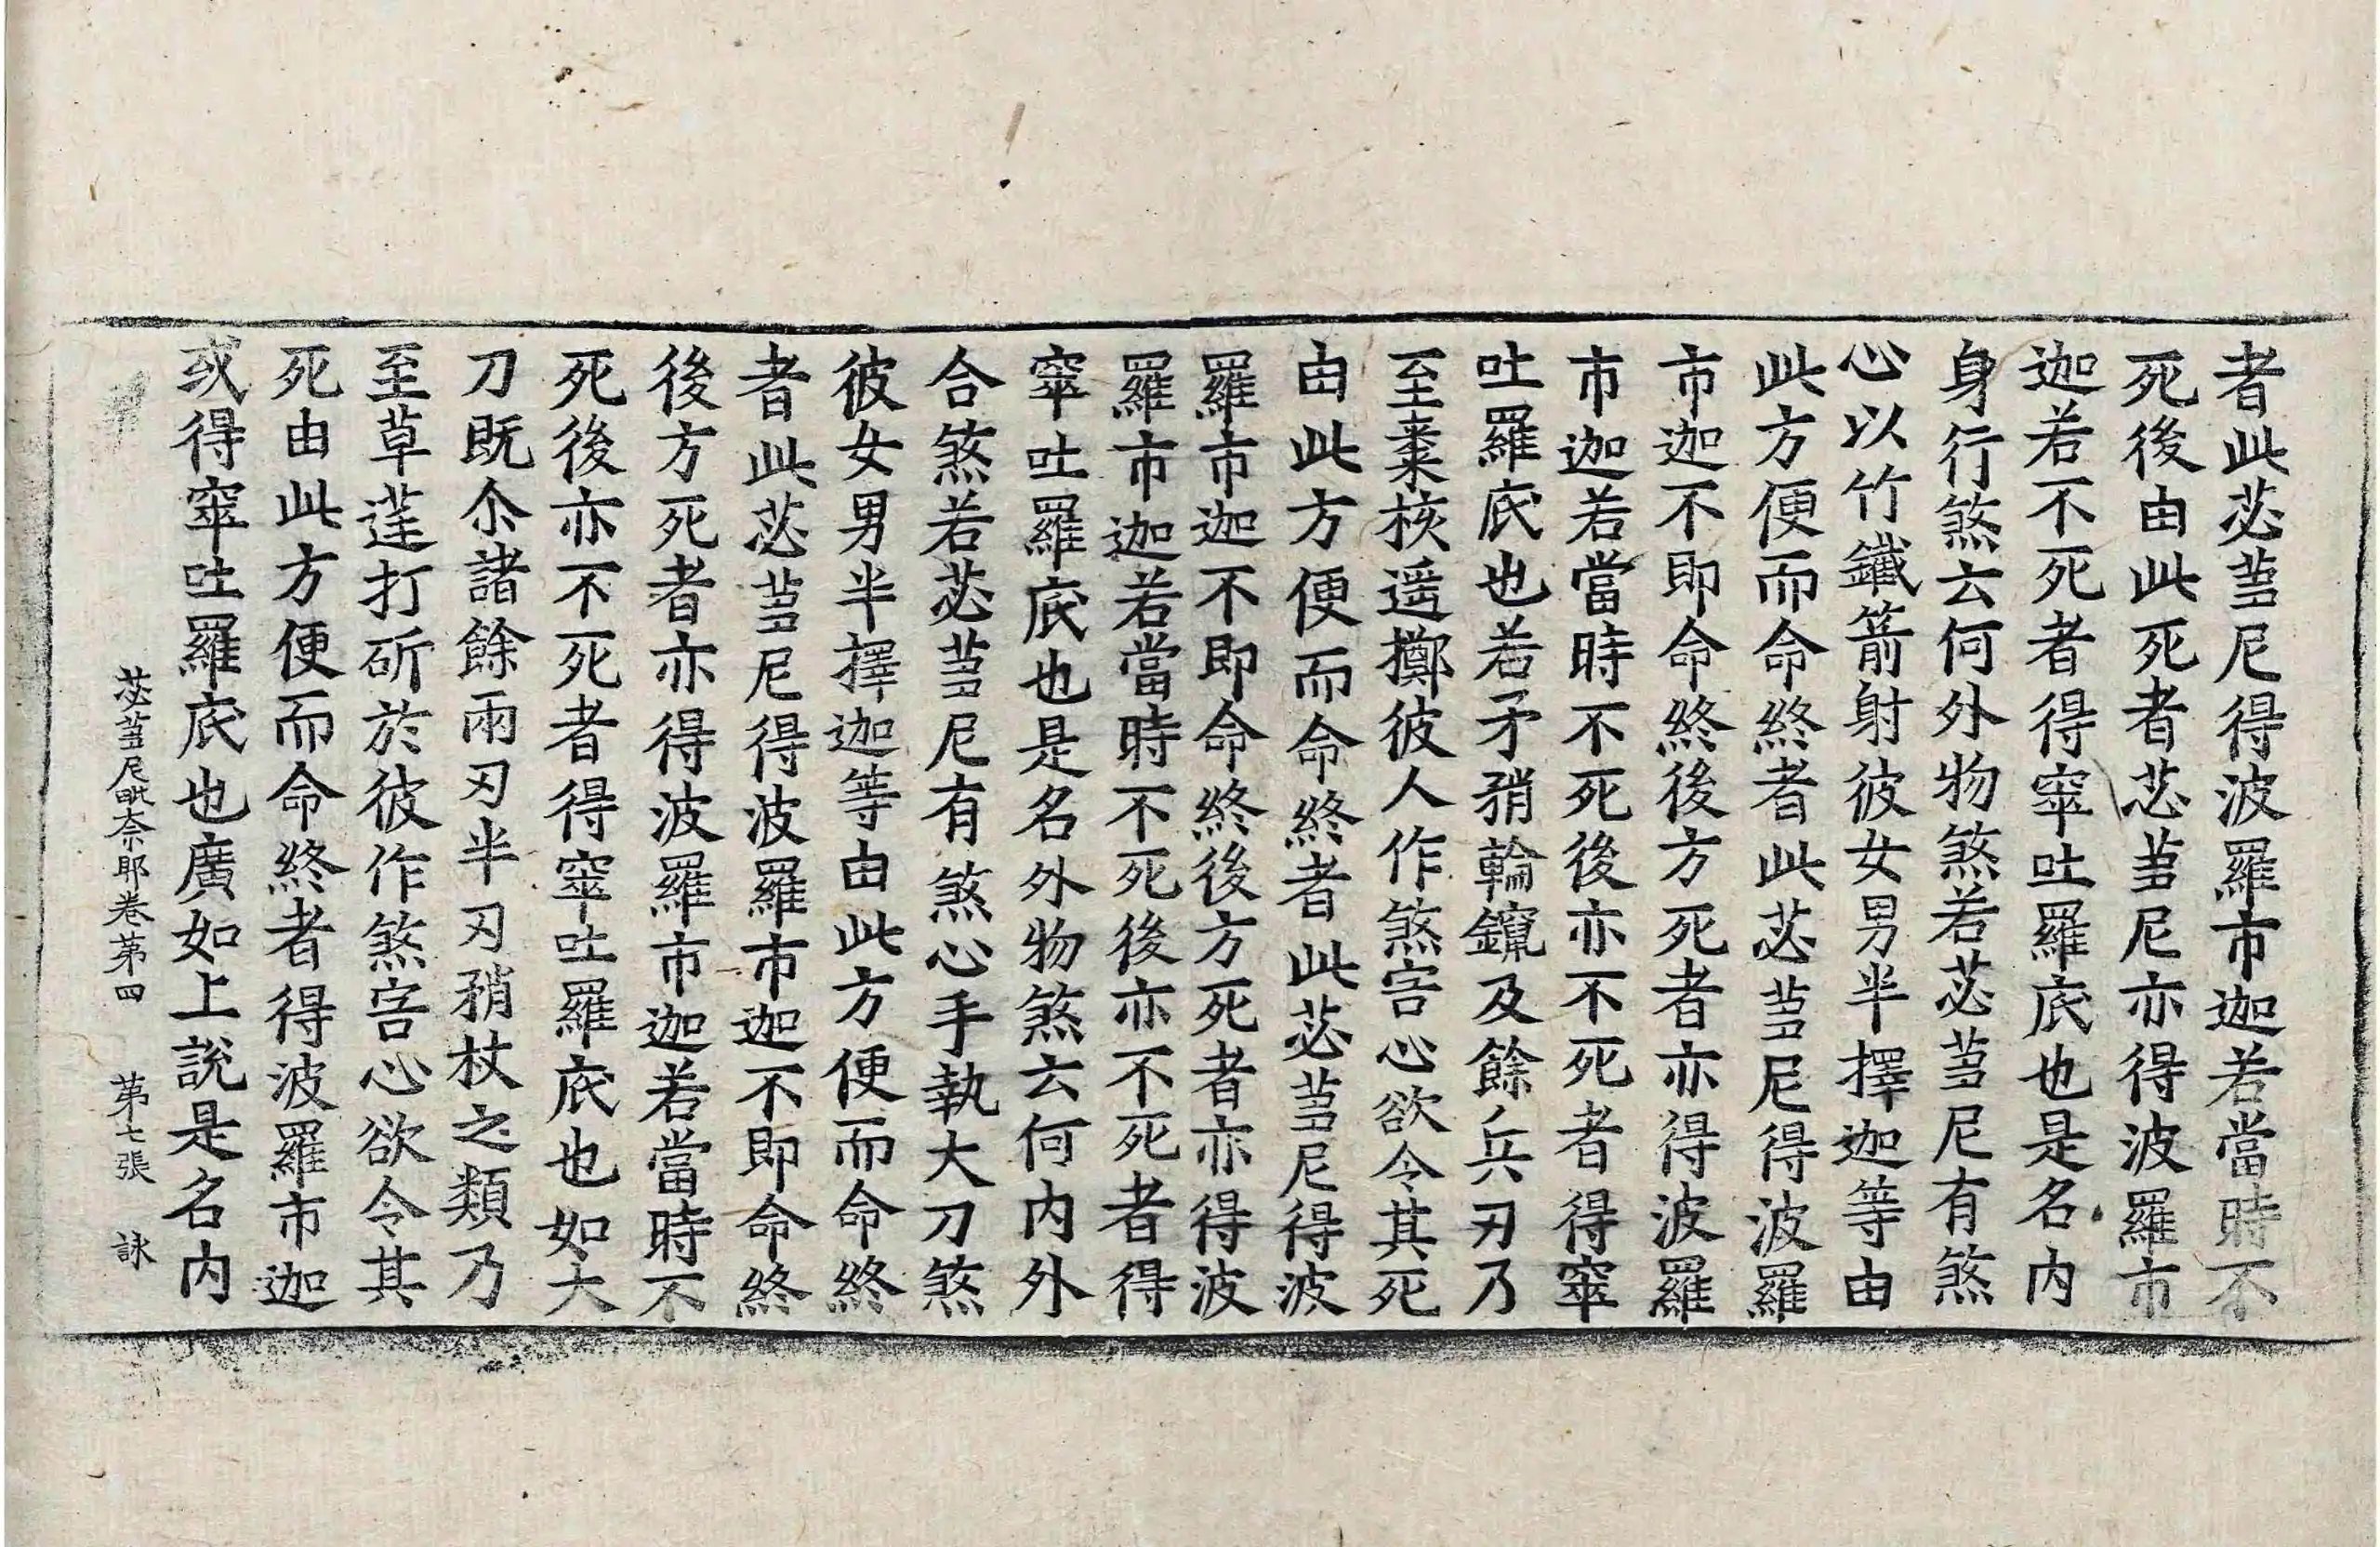 者此苾蒭尼得波羅市迦若當時不
死後由此死者苾蒭尼亦得波羅市
迦若不死者得窣吐羅底也是名內
身行煞云何外物煞若苾蒭尼有煞
心以竹鐵箭射彼女男半擇迦等由
此方便而命終者此苾蒭尼得波羅
市迦不即命終後方死者亦得波羅
市迦若當時不死後亦不死者得窣
吐羅底也若矛矟輪鑹及餘兵刃乃
至棗核遥擲彼人作煞害心欲令其死
由此方便而命終者此苾蒭尼得波
羅市迦不即命終後方死者亦得波
羅市迦若當時不死後亦不死者得
窣吐羅底也是名外物煞云何內外
合煞若苾蒭尼有煞心手執大刀煞
彼女男半擇迦等由此方便而命終
者此苾蒭尼得波羅市迦不即命終
後方死者亦得波羅市迦若當時不
死後亦不死者得窣吐羅底也如大
刀既尒諸餘兩刃半刃矟杖之類乃
至草莚打斫於彼作煞害心欲令其
死由此方便而命終者得波羅市迦
或得窣吐羅底也廣如上說是名內
苾蒭尼毗奈耶卷第四 第七張 詠